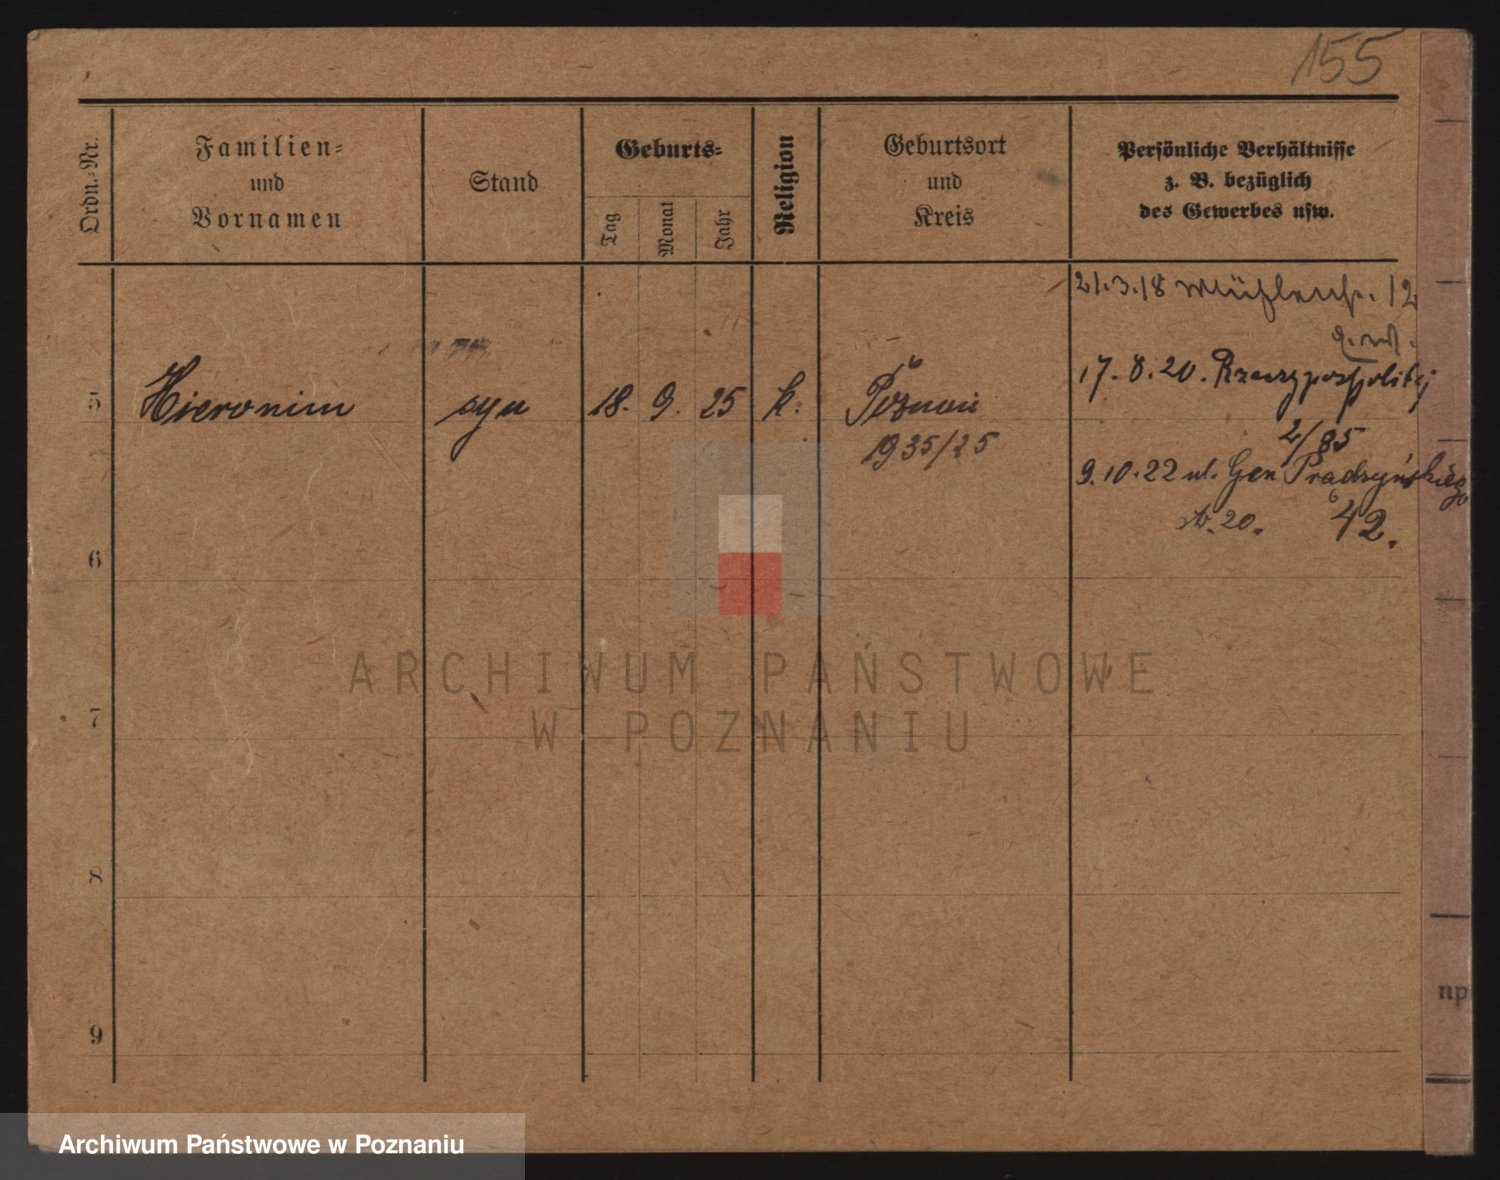 155
Ordn.-Nr.
Familien-
und
Vornamen
Stand
Geburts-
Tag
Monat
Jahr
Religion
Geburtsort
und
Kreis
Persönliche Verhältnisse
z. B. bezüglich
des Gewerbes usw.
21.3.18 Mühlenstr. 12
17.8.20. Rzeczypospolitej
2/85
5 Hieronim syn 18. 9. 25 k. Poznań
1935/25
9.10.22 ul. Gen Prądzyńskiego
20. 42.
6
7
8
9
np
ARCHIWUM PAŃSTWOWE
W POZNANIU
Archiwum Państwowe w Poznaniu